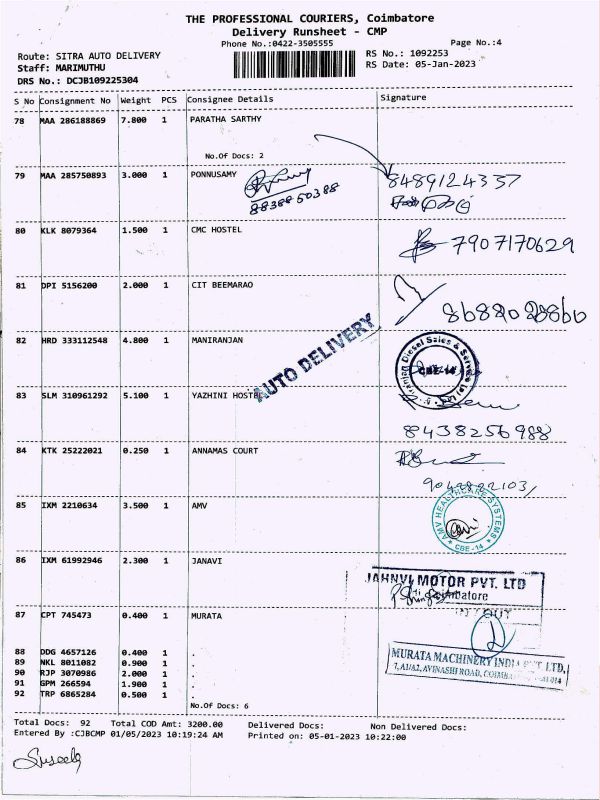 THE PROFESSIONAL COURIERS, Coimbatore
Delivery Runsheet - CMP
Phone No.:0422-3505555 Page No.:4
Route: SITRA AUTO DELIVERY RS No.: 1092253
Staff: MARIMUTHU RS Date: 05-Jan-2023
DRS No.: DCJB109225304
S No Consignment No Weight PCS Consignee Details Signature
78 MAA 286188869 7.800 1 PARATHA SARTHY
No.Of Docs: 2
79 MAA 285750893 3.000 1 PONNUSAMY 8489124337
8838850388
80 KLK 8079364 1.500 1 CMC HOSTEL 7907170629
81 DPI 5156200 2.000 1 CIT BEEMARAO
AUTO DELIVERY
82 HRD 333112548 4.800 1 MANIRANJAN
Diesel Sales & Service
83 SLM 310961292 5.100 1 YAZHINI HOSTEL
8438256988
84 KTK 25222021 0.250 1 ANNAMAS COURT
85 IXM 2210634 3.500 1 AMV
AMV HEALTHCARE SYSTEMS
* CBE-14 *
86 IXM 61992946 2.300 1 JANAVI
JAHNVI MOTOR PVT. LTD
87 CPT 745473 0.400 1 MURATA
MURATA MACHINERY INDIA PVT. LTD,
AVINASHI ROAD,
88 DDG 4657126 0.400 1 .
89 NKL 8011082 0.900 1 .
90 RJP 3070986 2.000 1 .
91 GPM 266594 1.900 1 .
92 TRP 6865284 0.500 1 .
No.Of Docs: 6
Total Docs: 92 Total COD Amt: 3200.00 Delivered Docs: Non Delivered Docs:
Entered By :CJBCMP 01/05/2023 10:19:24 AM Printed on: 05-01-2023 10:22:00